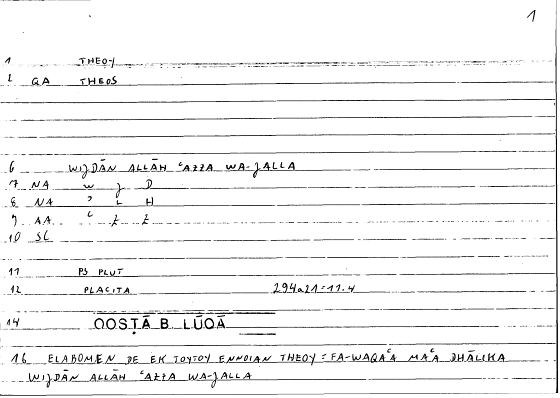 1
1 THEOY
2 GA THEOS
6 WIJDĀN ALLĀH ʿAZZA WA-JALLA
7 NA W J D
8 NA ʾ L H
9 AA ʿ Z Z
10 SL
11 PS PLUT
12 PLACITA 294a21=11.4
14 QOSṬĀ B. LŪQĀ
16 ELABOMEN DE EK TOYTOY ENNOIAN THEOY = FA-WAQAʿA MAʿA DHĀLIKA
WIJDĀN ALLĀH ʿAZZA WA-JALLA